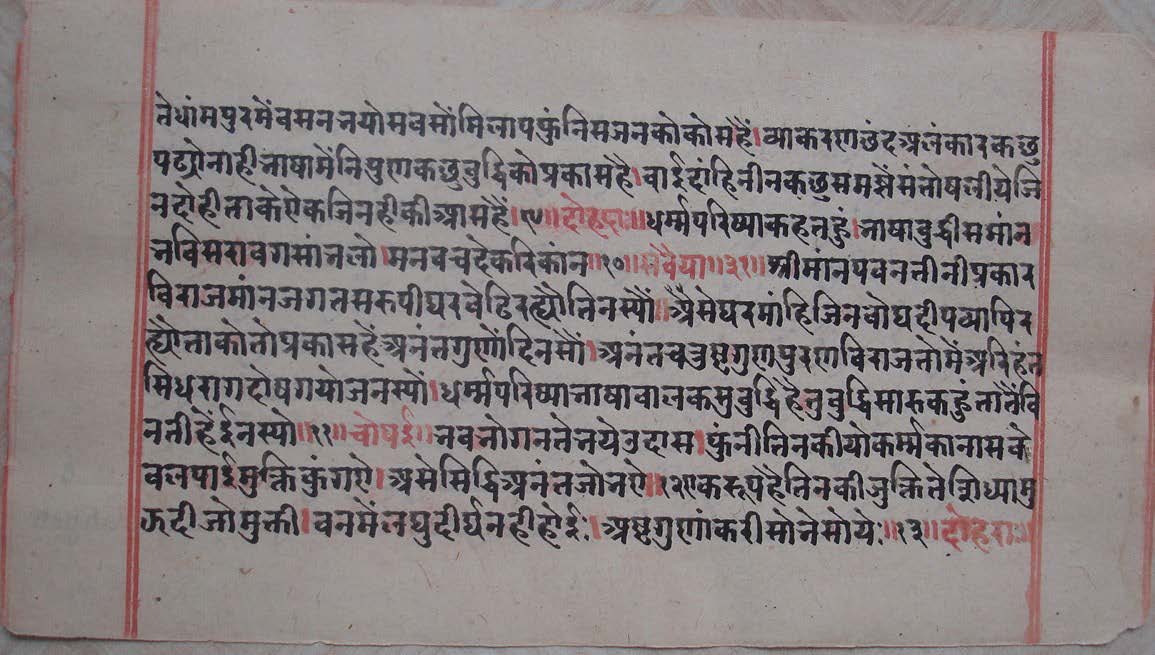 तेधांमपुरमैंवमननयोसवसौंमिलापफुंनिसजनकोकोसहैं। व्याकरणछंदअलंकारकछु
पढ्योनाहीभाषामैंनिपुणकछुबुद्धिकोप्रकासहै। वाईदांहिनीनकछुसमझैंसंतोषलीयेजि
नदोहीताकेऐकजिनहीकीआसहैं। ९॥दोहरा॥ धर्म्मपरिष्याकहतहुं। भाषाबुद्धीसमांन
नविसरावगसांभलो। मनवचदेकरिकांन॥१०॥सवैया॥३१॥ श्रीमांनपवनतीनीप्रकार
विराजमांनजगतसरुपीघरवेढिरह्योतिनस्यौं॥ अैसेघरमांहिजिनबोधदीपव्यापिर
ह्योताकोतोप्रकासहैंअनंतगुणौंदिनसौं। अनंतचतुष्टगुणपुरणविराजतोमैंअरिहंत
सिधरागदोषगयोजनस्यों। धर्म्मपरिष्याभाषावालकसुबुद्धिहैतुबुद्धिसारुकहुंतातैंवि
नतीहैंईनस्यो॥११॥चौपई॥ भवभोगनतेभयेउदास। फुंनीतिनकीयोकर्म्मकोनासके
वलपाईमुक्तिकुंगऐ। अैसेसिद्धिअनंतजोभऐ॥१२॥ऐकरूपहैतिनकीजुक्तितेत्रिध्यासु
ऊदीजोमुक्ती। वनमेंलघुदीर्घनहीहोई:। अष्टगुणांकरीसोनेसोये:॥१३॥दोहरा॥